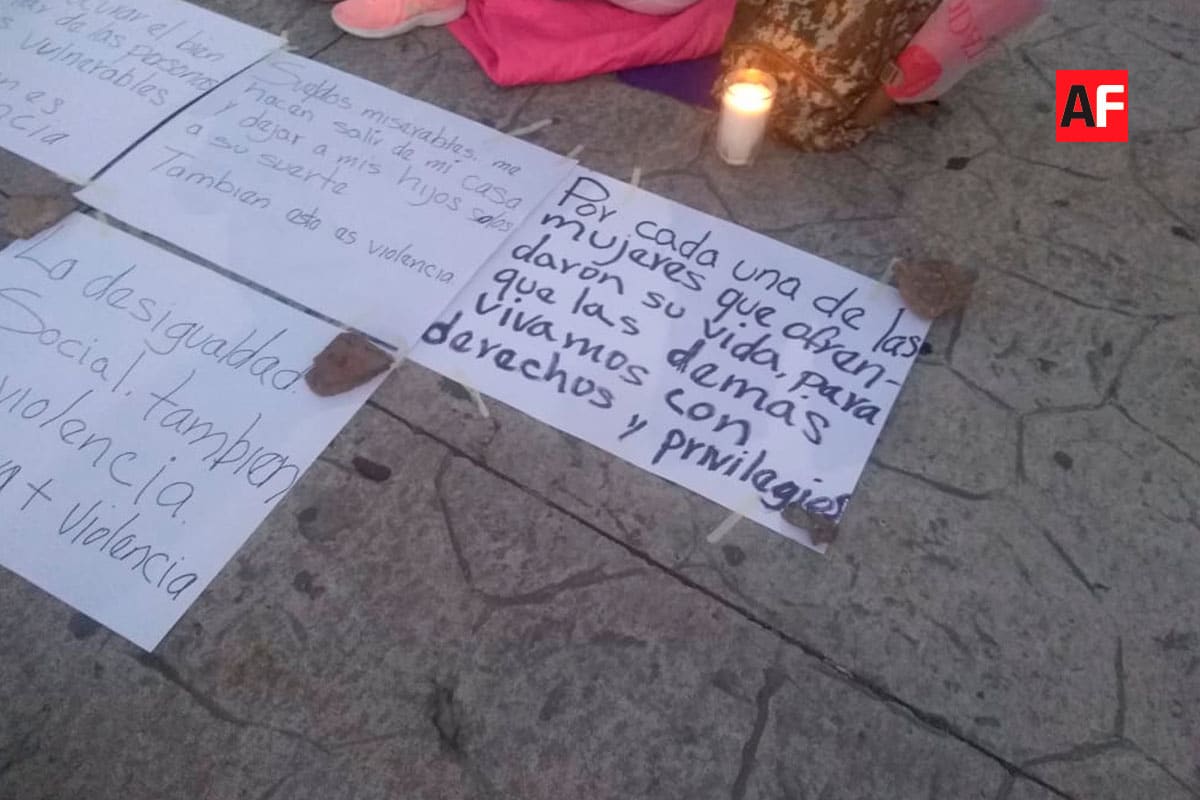 el bien
de las personas
vulnerables
es
Sueldos miserables, me
hacen salir de mi casa
y dejar a mis hijos solos
a su suerte
Tambien esto es violencia
La desigualdad
Social, tambien
violencia
+ violencia
Por cada una de las
mujeres que ofren-
darón su vida, para
que las demás
vivamos con
derechos y privilegios
AF